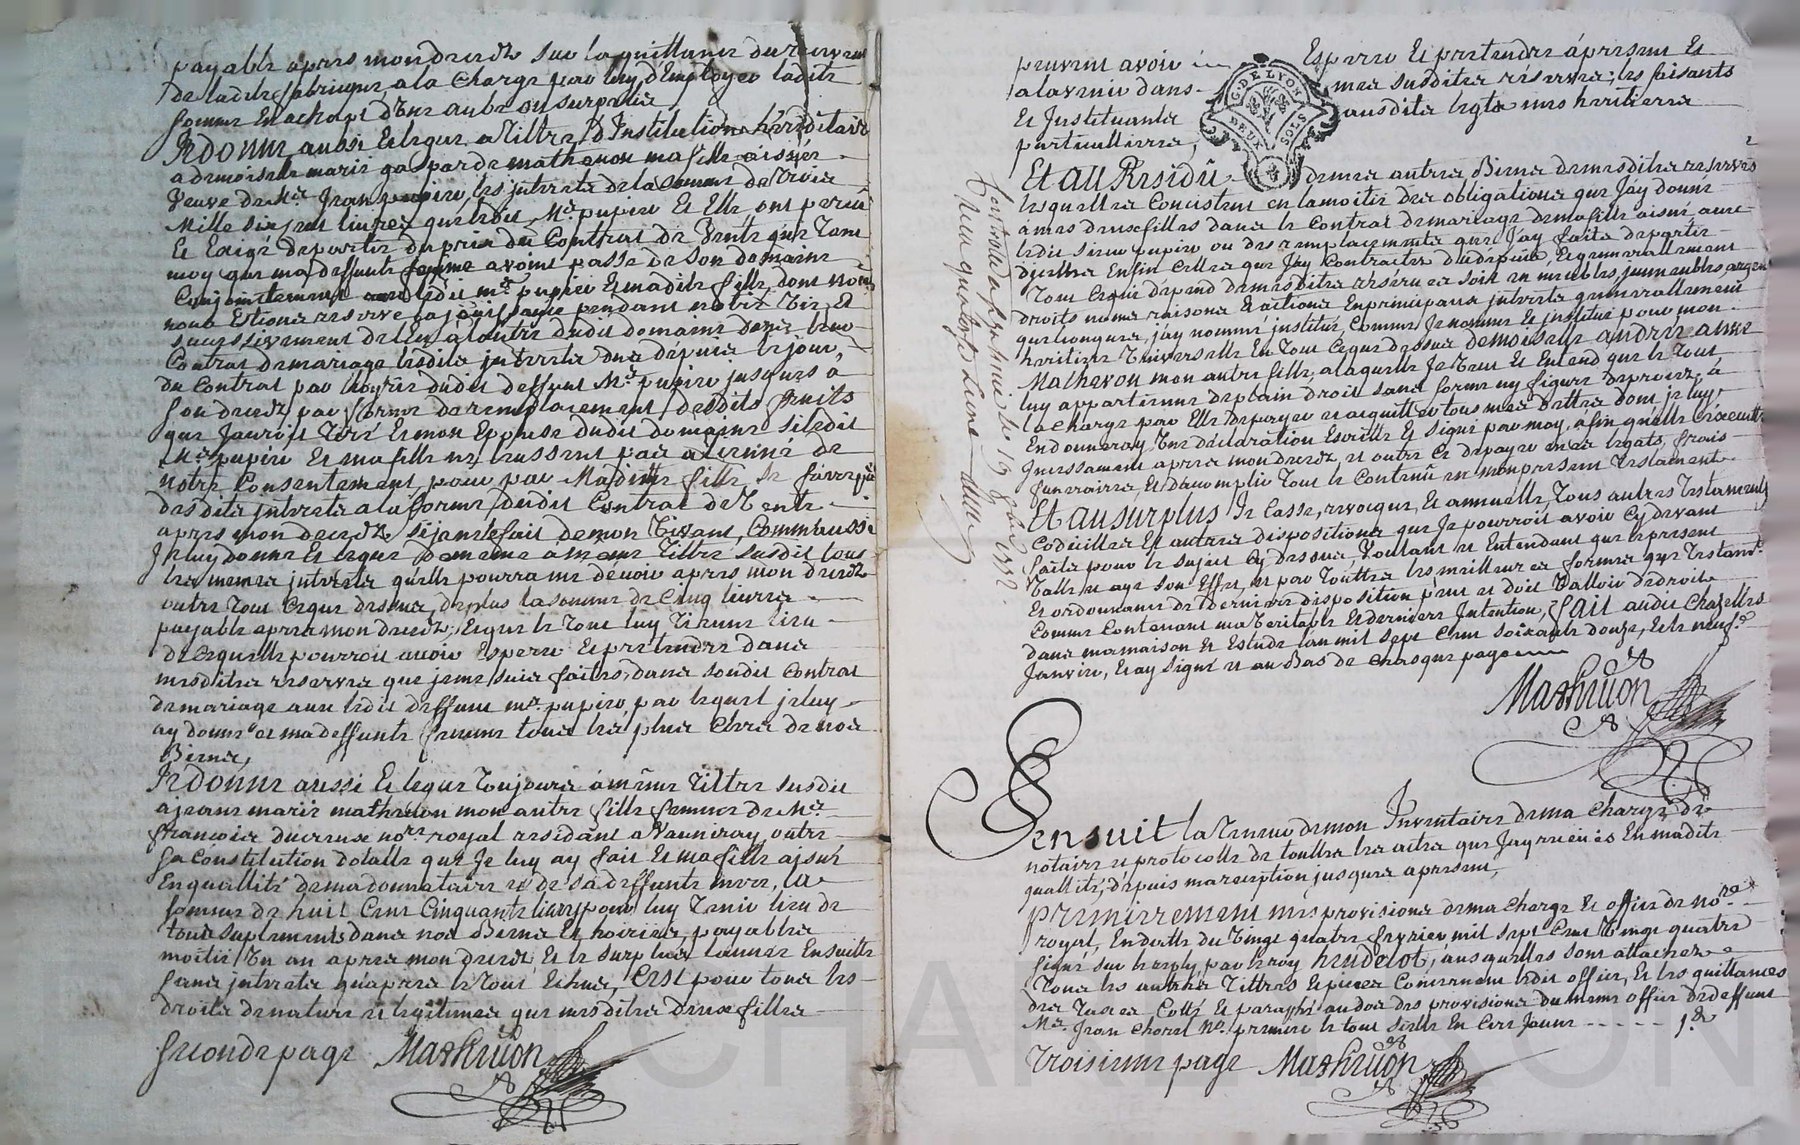 payable apres mon decedz sur la quittance du reverend
de ladite fabrique, a la charge par luy d'Employer ladite
somme En achapt d'Une aube ou surpelis
Je donne aussi Et legue a Tiltre D'Institution héréditaire
a demoiselle marie gasparde mathevon ma fille aisnée
Veuve de Me Jean pupier, les interets de la somme de Trois
Mille six cent livres que ledit Me pupier Et Elle ont perceu
Et Exigé de partie du prix du Contrat de Vente que Tant
moy que ma deffunte femme avions passé de son domaine
Conjointement avec ledit me pupier Et madite fille, dont nous
nous Estions reservé la jouissance pendant notre Vie, Et
successivement de l'un a l'autre dudit domaine dans leur
Contrat de mariage lesdits interets dus depuis le jour
du Contrat par l'hoyrie dudit deffunt Me pupier jusques a
son decedz par forme de remplacement desdits fruits
que J'aurois Tiré Et mon Epouse dudit domaine si ledit
Me pupier Et ma fille ne l'eussent pas aliéné de
notre Consentement, pour par Madite fille se faire payer
desdits interets a la forme dudit Contrat de Vente
apres mon decedz, si je ne le fait de mon Vivant, Comme aussi
Je luy donne Et legue de meme a meme Tiltre susdit tous
les memes interets qu'elle pourra me devoir apres mon decedz
outre Tout Ce que dessus, de plus la somme de Cinq livres
payable apres mon decedz, Et que le Tout luy Tienne lieu
de Ce qu'elle pourroit avoir Esperer Et pretendre dans
mesdites reserves que je me suis faites dans sondit Contrat
de mariage avec ledit deffunt me pupier, par lequel je luy
ay donné et ma deffunte femme tous les plus Clers de nos
Biens,
Je donne aussi Et legue Toujours a même Tiltre susdit
a jeanne marie mathevon mon autre fille femme de Me
françois ducreux nore royal residant a Vauneray, outre
sa Constitution dotalle que Je luy ay fait Et ma fille aisné
En quallité de ma donnataire et de sa deffunte mere, la
somme de huit Cent Cinquante livres pour luy Tenir lieu de
tous suplements dans nos Biens Et hoiries payable
moitié Un an apres mon decedz, Et le surplus l'année Ensuitte
sans interets qu'apres le Tout Echus, C'est pour tous les
droits de nature et légitimes que mesdites deux filles
seconde page Mathevon
peuvent avoir Esperer Et pretendre a present Et
a l'avenir dans mes susdites réserves; les faisants
Et Instituants ausdits legts mes heritieres
particullieres,
G. DE LYON
DEUX SOLS
Et au Residû de mes autres Biens de mesdites reserves
lesquelles Consistent en la moitié des obligations que J'ay donné
a mesdeuxfilles dans le Contrat de mariage de ma fille aisné avec
ledit sieur pupier ou des remplacements que J'ay faits de partie
d'icelles Enfin Celles que J'ay Contractées du depuis, Et generallement
Tout Ce qui depend de mesdites réserves soit en meubles, immeubles, argent
droits noms raisons Et actions En principaux interets generallement
quelconques, j'ay nommé institué, Comme Je nomme Et institue pour mon
heritiere Universelle En Tout Ce que dessus demoiselle andrée anne
Mathevon mon autre fille, a laquelle Je Veux Et Entend que le Tout
luy appartienne de plain droit sans forme ny figure de procez, a
la Charge par Elle de payer et acquitter tous mes dettes dont je luy
En donneray Une déclaration Escritte Et signé par moy, afin qu'elle s'execute
Incessament apres mon decedz, et outre Ce de payer mes legats, frais
funeraires, Et d'accomplir Tout le Contenû en mon present Testament
Et au surplus Je Casse, revoque, Et annulle Tous autres Testaments
Codicilles Et autres dispositions que Je pourrois avoir Cy devant
faits pour le sujet Cy dessus, Voulant et Entendant que le present
Valle et aye son Effet, et par Touttes les meilleures formes que Testamt
Et ordonnance de Derniere disposition peut et doit Valloir de droit
Comme Contenant ma Veritable Et derniere Intention, fait audit Chazelles
dans ma maison Et Estude l'an mil sept Cent soixante douze, Et le neufe
Janvier, Et ay signé et au Bas de chasque page
Mathevon
Controllé a le 19 1772.
Reçu quatorze livres
S'ensuit la Teneur de mon Inventaire de ma Charge de
notaire et protocolle de touttes les actes que J'ay reçues En madite
quallité, depuis ma reception jusques a present,
premierement mes provisions de ma Charge Et office de nore
royal, En datte du Vingt quatre fevrier mil sept Cent Vingt quatre
signé sur le reply, par le roy hudelot, ausquelles sont attachez
Tous les autres Tiltres Et pieces Concernant ledit office, Et les quittances
des Taxes, Cotté Et paraphé au dos des provisions du meme office de deffunt
Me Jean Chorel No premier le tout Un Cers Jaune - - - - - 1.
Troisieme page Mathevon